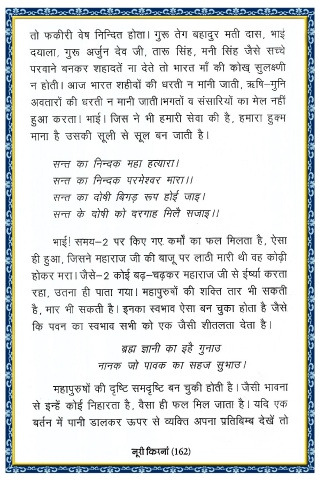 तो फकीरी वेष निन्दित होता। गुरू तेग बहादुर मती दास, भाई
दयाला, गुरू अर्जुन देव जी, तारू सिंह, मनी सिंह जैसे सच्चे
परवाने बनकर शहादतें ना देते तो भारत माँ की कोख् सुलक्ष्णी
न होती। आज भारत शहीवों की धरती न मांनी जाती, ऋषि–मुनि
अवतारों की धरती न मानी जाती।भगतों व संसारियों का मेल नहीं
हुआ करता। भाई। जिस ने भी हमारी सेवा की है, हमारा हुक्म
माना है उसकी सूली से सूल बन जाती है।
सन्त का निन्दक महा हत्यारा।
सन्त का निन्दक परमेश्वर मारा।।
सन्त का दोषी बिगड़ रूप होई जाइ।
सन्त के दोषी को दरगाह मिलै सजाइ।।
भाई! समय–2 पर किए गए कर्मों का फल मिलता है, ऐसा
ही हुआ, जिसने महाराज जी की बाजू पर लाठी मारी थी वह कोढ़ी
होकर मरा। जैसे–2 कोई बढ़–चढ़कर महाराज जी से ईर्ष्या करता
रहा, उतना ही पाता गया। महापुरुषों की शक्ति तार भी सकती
है, मार भी सकती है। इनका स्वभाव ऐसा बन चुका होता है जैसे
कि पवन का स्वभाव सभी को एक जैसी शीतलता देता है।
ब्रह्म ज्ञानी का इहै गुनाउ
नानक जो पावक का सहज सुभाउ।
महापुरुषों की दृष्टि समदृष्टि बन चुकी होती है। जैसी भावना
से इन्हें कोई निहारता है, वैसा ही फल मिल जाता है। यदि एक
बर्तन में पानी डालकर ऊपर से व्यक्ति अपना प्रतिबिम्ब देखें तो
नूरी किरनां (162)